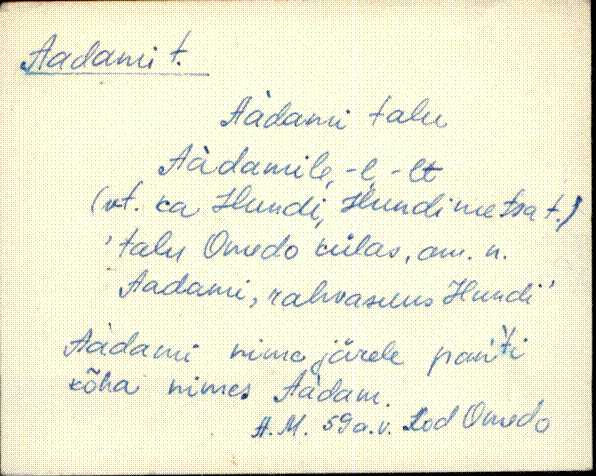 Aadami t.
Aàdami talu
Aàdamile, -l, -lt
(vt. ka Hundi, Hundimetsa t.)
'talu Omedo külas, am. n.
Aadami, rahvasuus Hundi'
Aàdami nime järele pan'ti
kõha nimes Aàdam.
A.M. 59 a.v. Kod Omedo